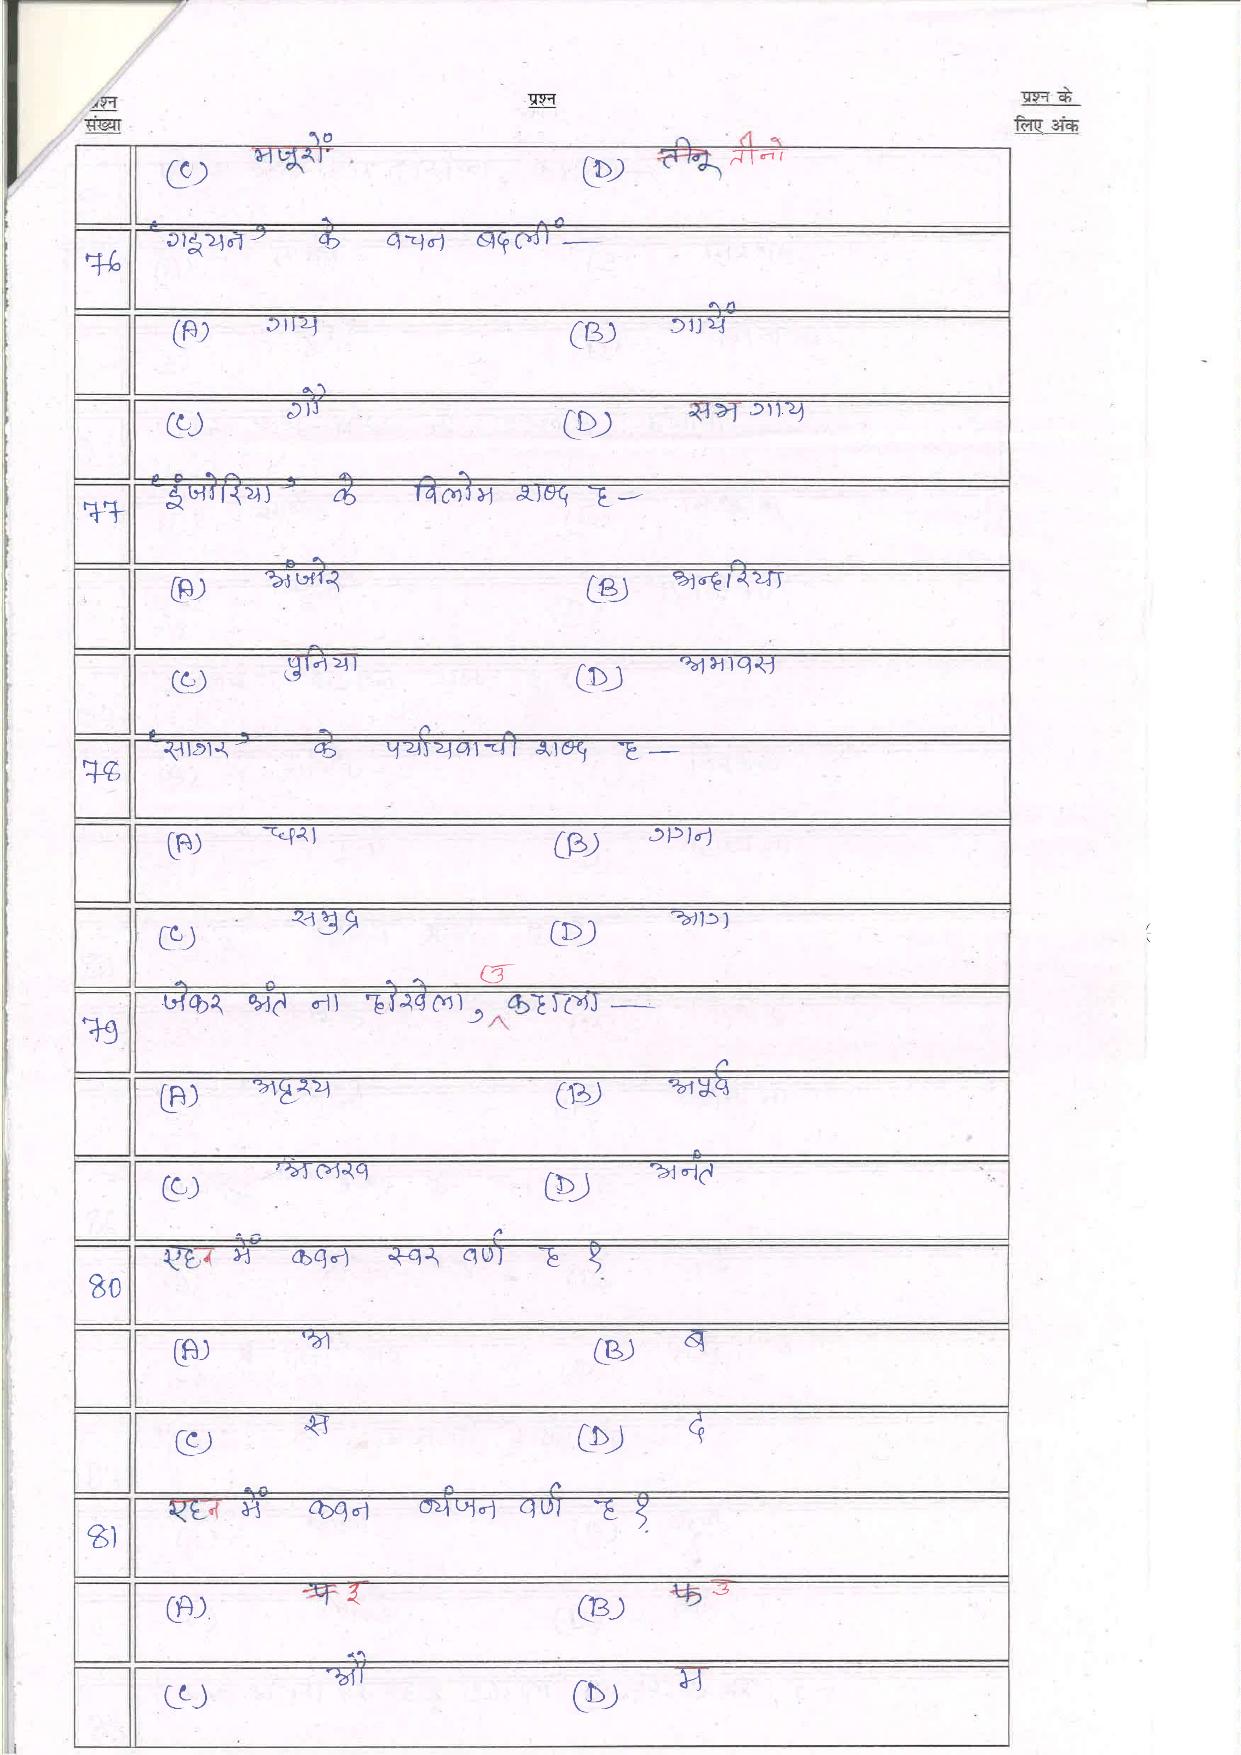 प्रश्न प्रश्न प्रश्न के
संख्या लिए अंक
(C) मजूरों (D) तीनू तीनो
76 'गइयन' के वचन बदलीं —
(A) गाय (B) गायें
(C) गौ (D) सभ गाय
77 'इंजोरिया' के विलोम शब्द ह —
(A) अंजोर (B) अन्हरिया
(C) पुनिया (D) अमावस
78 'सागर' के पर्यायवाची शब्द ह —
(A) धरा (B) गगन
(C) समुद्र (D) आग
उ
79 जेकर अंत ना होखेला, ^ कहाला —
(A) अदृश्य (B) अपूर्व
(C) अलख (D) अनंत
80 एहन में कवन स्वर वर्ण ह ?
(A) अ (B) ब
(C) स (D) द
81 एहन में कवन व्यंजन वर्ण ह ?
(A) प इ (B) फ उ
(C) औ (D) म